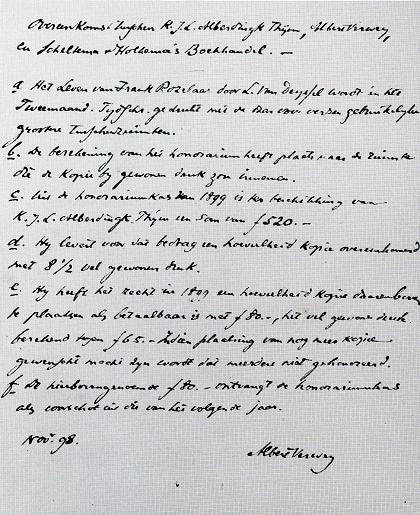 Overeenkomst tusschen K.J.L. Alberdingk Thijm, Albert Verwey,
en Scheltema & Holkema's Boekhandel. —
a Het Leven van Frank Rozelaar door L. van Deyssel wordt in het
Tweemaand. Tijdschr. gedrukt met de voor verzen gebruikelijke
grootere tusschenruimten.
b. De berekening van het honorarium heeft plaats naar de ruimte
die de kopie bij gewonen druk zou innemen.
c. Uit de honorariumkas van 1899 is ter beschikking van
K.J.L. Alberdingk Thijm een som van f 520. —
d. Hy levert voor dat bedrag een hoeveelheid kopie overeenkomend
met 8 1/2 vel gewonen druk.
e. Hy heeft het recht in 1899 een hoeveelheid kopie daarenboven
te plaatsen als betaalbaar is met f 80.—, het vel gewone druk
berekend tegen f 65. — Indien plaatsing van nog meer kopie
gewenscht mocht zyn wordt dat meerdere niet gehonoreerd.
f De hierbovengenoemde f 80. — ontvangt de honorariumkas
als voorschot uit die van het volgende jaar.
Nov. 98.
Albert Verwey